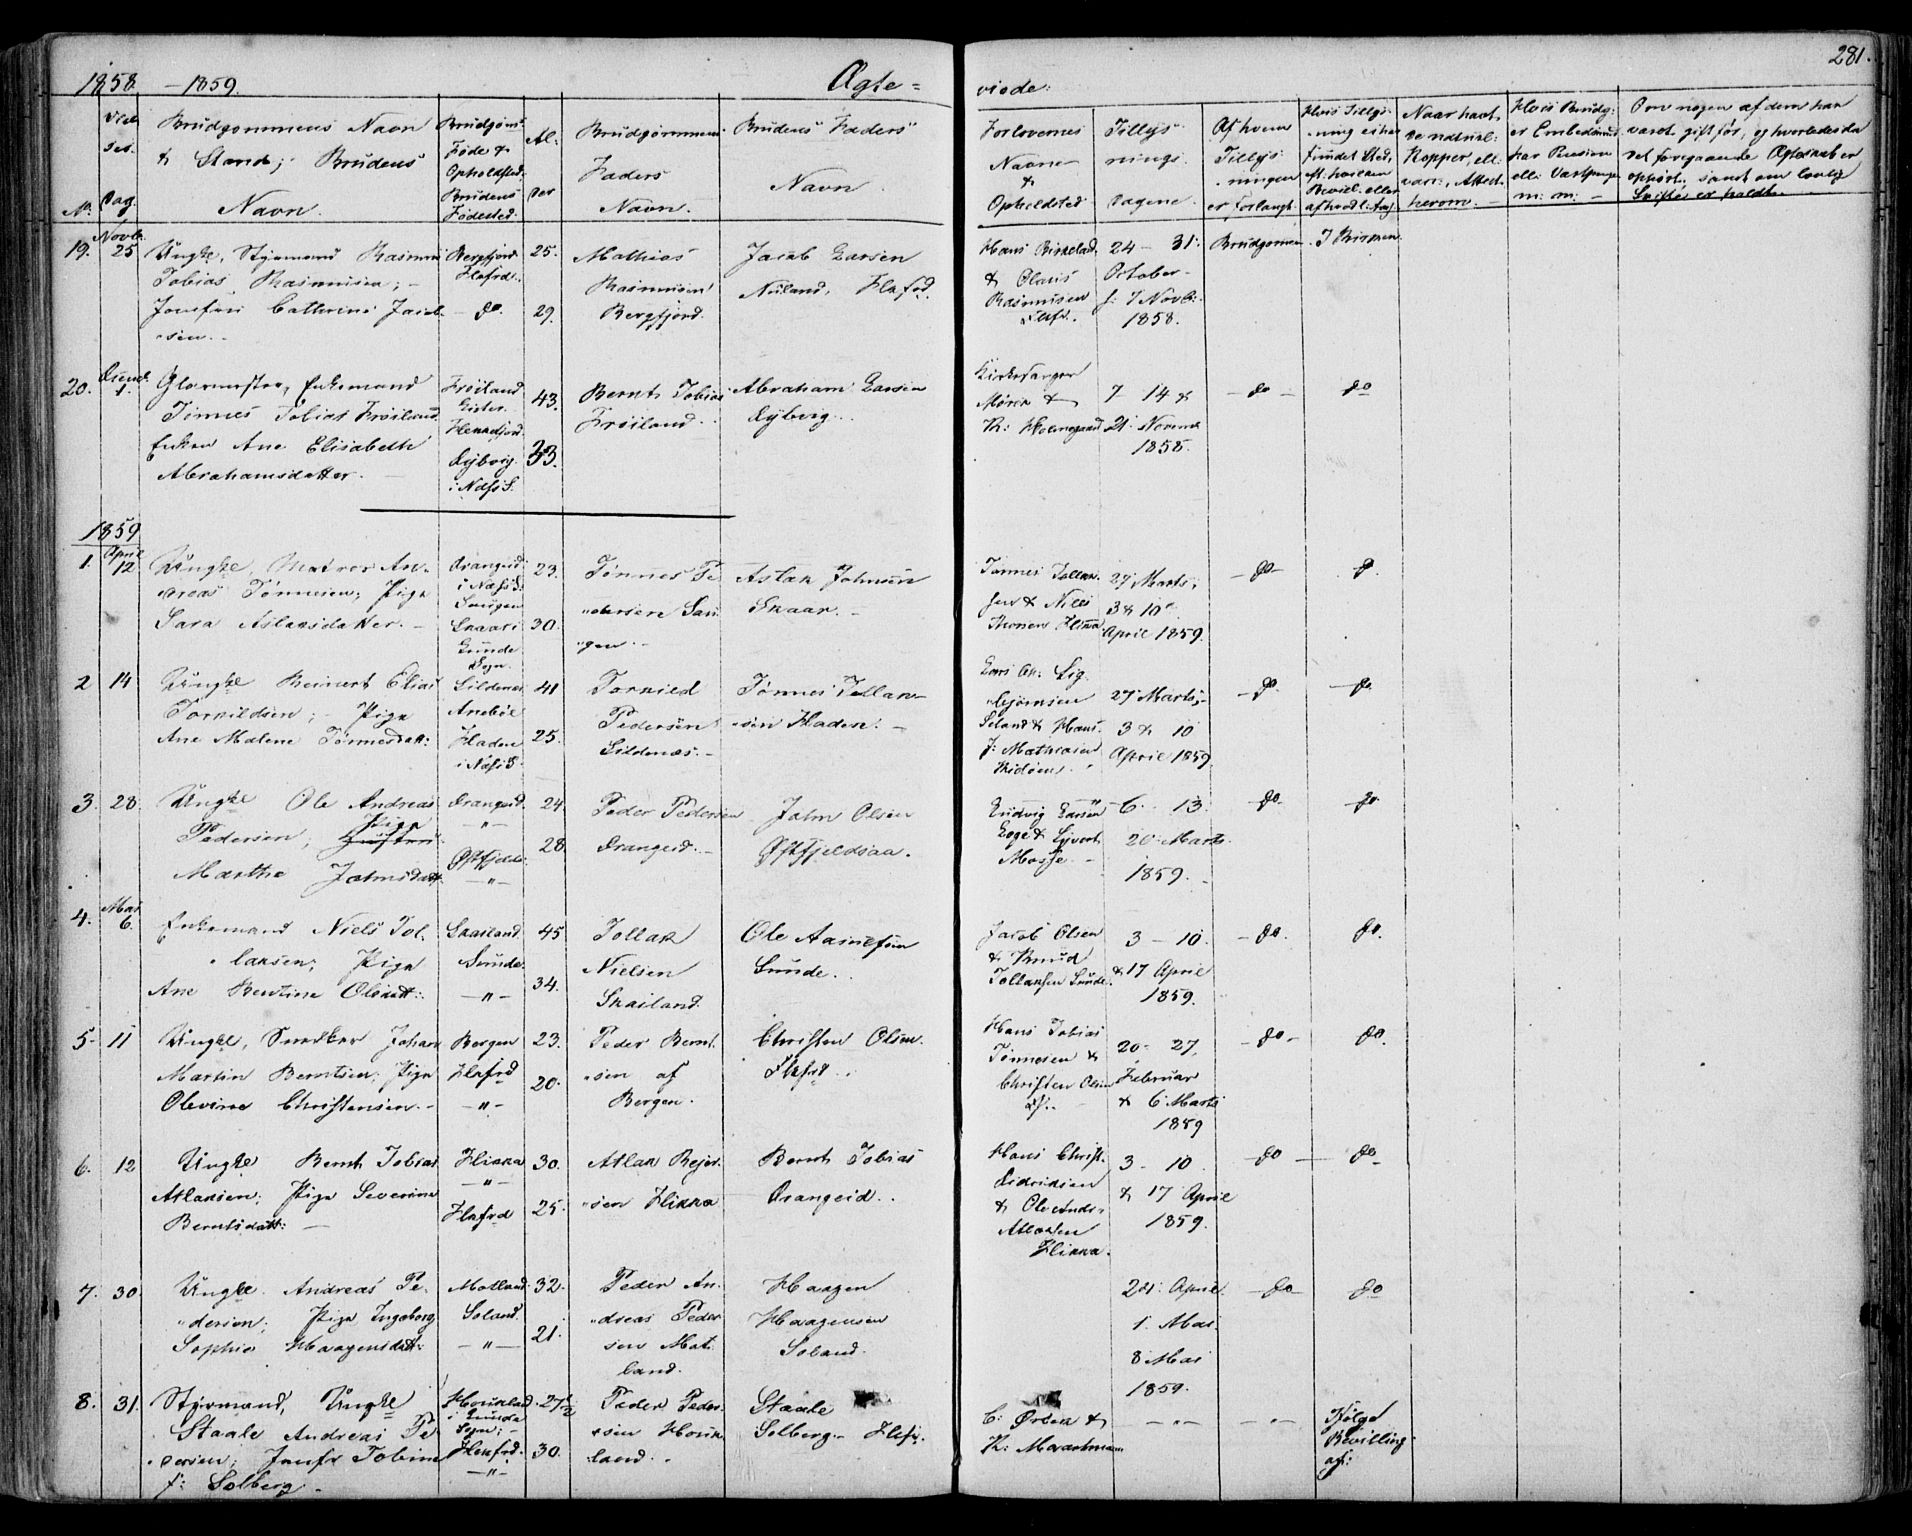 281.
1858 – 1859. Ægte= viede:
No.
Vielses- Dag.
Brudgommens Navn & Stand; Brudens Navn.
Brudgoms Føde & Opholdsted. Brudens Fødested.
Alder
Brudgommens Faders Navn.
Brudens Faders Navn.
Forlovernes Navne & Opholdsted
Tillysnings- dagene.
Af hvem Tillysningen er forlangt
Naar havt de naturl: Kopper, ell. vacc:, Attest herom. –
Hvis Brudg: er Embedsmd har Pension m: m: –
Om nogen af dem har været gift før, og hvorledes da det foregaaende Ægteskab er ophørt, samt om lovlig Skifte er holdt.
19. Novb. 25
Ungke, Styrmand Rasmus
Tobias Rasmusen; –
Jomfru Cathrine Jacob-
sen. –
Bergfjord Flekfrd.
– do.
25.
29.
Mathias
Rasmusen
Bergfjord.
Jacob Larsen
Nuland, Flekfrd.
Hans Birkelad.
& Olaus
Rasmusen
Flkf.
24 – 31:
October –
f: 7 Novb:
1858.
Brudgomen.
J Kirken.
20. Decmb. 1.
Glarmester, Enkemand
Tønnes Tobias Frøiland
Enken Ane Elisabeth
Abrahamsdatter. –
Frøiland
Lister.
43.
33.
Bernt Tobias
Frøiland.
Abraham Larsen
Eyberg.
Kirkesanger
Mørck &
7 – 14 &
21: Novemb
1858.
– do –
do
1859
1. April 12
Ungke, Matros An-
dreas Tønnesen; Pige
Sara Aslaksdatter. –
Drangeid
i Næs S.
Skaar i
Sunde
Sogn.
23.
30.
Tønnes Pe-
dersen
Aslak Johnsen
Skaar. –
Tønnes Tollak-
sen & Niels
27 Marts,
3 & 10
April 1859.
– do –
do.
2 14
Ungke Reinert Elias
Torkildsen; – Pige
Ane Malene Tønnesdatt:
Sildenes
Anebøe
Fladen
i Næs S.
41
25.
Torkild
Pedersen
Sildenæs. –
Tønnes Tollak-
sen Fladen. –
27 Marts, –
3 & 10
April 1859.
– do.
– do.
3. 28.
Ungke Ole Andreas
Pedersen; Pige
Marthe Johnsdatt.
Drangeid.
– " –
Østfjelds:
– " –
24.
28
Peder Pedersen
Drangeid. –
John Olsen
Østfjeldsaa.
Ludvig Larsen
Loge & Syvert
Mosje. –
6 – 13.
20: Marts
1859. –
– do.
– do.
4. Mai 6.
Enkemand Niels Tol-
laksen; Pige
Ane Bentine Olsdatt:
Skailand
Sunde.
– " –
45
34.
Tollak
Nielsen
Skailand.
Ole Aanensen
Sunde.
Jacob Olsen
& Knud
Tollaksen Sunde.
3 – 10.
& 17 April
1859.
– do.
do.
5- 11
Ungke, Snedker Johan
Martin Berntsen; Pige
Olevine Christensen. –
Bergen
Flkfrd
– " –
23.
20.
Peder Bernt-
sen af
Bergen.
Christen Olsen.
Flkfrd.
Hans Tobias
Tønnesen &
Christen Olsen
20 – 27,
Februar
& 6 Marts
1859
– do –
do.
6. 12
Ungke Bernt Tobias
Atlaksen; Pige Severine
Berntsdatt: –
Flikka
– " –
Flkfrd
30.
25.
Atlak Rejer-
sen Flikka
Bernt Tobias
Drangeid.
Hans Christ.
Didriksen
& Ole Andr.
Atlaksen
Flikka.
3 – 10
& 17 April
1859.
– do –
do –
7. 30.
Ungke. Andreas Pe-
dersen; Pige Ingeborg
Sophie Haagensdatt:
Motland
Soland.
– " –
32.
21.
Peder An-
dreas Peder
sen Mot
land.
Haagen
Haagensen
Soland.
24: April
1. Mai.
8 Mai
1859.
– do –
do
8. 31.
Styrmand, Ungke
Staale Andreas Pe-
dersen; Jomfr Tobine
f: Solberg. –
i Sunde
Sogn; –
Flekfrd.
– " –
27½
30.
Peder Peder-
sen
land.
Staale
Solberg – Flkf.
C: Ørbek &
– " –
– " –
Ifølge
Bevilling
af: